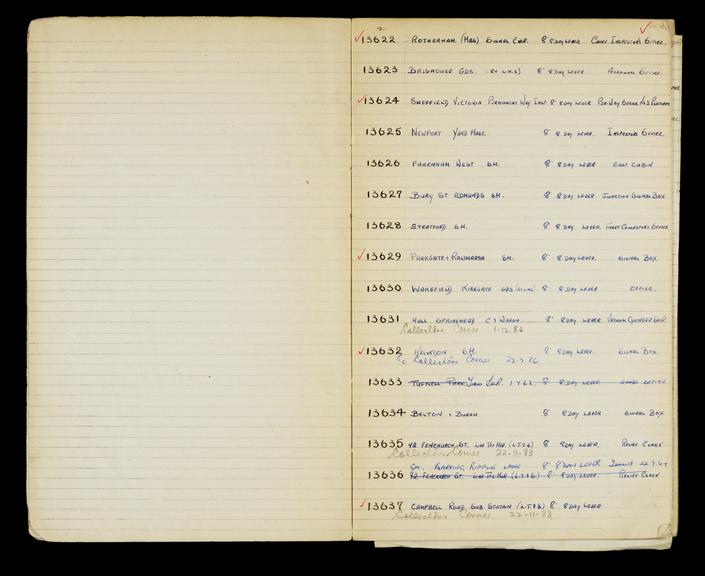 13622 ROTHERHAM (MAS) SIGNAL ENR. 8" 8 DAY LEVER CHIEF INSPECTORS OFFICE.
13623 BRIGHOUSE GDS. 8" 8 DAY LEVER OFFICE.
13624 SHEFFIELD VICTORIA PERMANENT WAY INSP. 8" 8 DAY LEVER PER. WAY
13625 NEWPORT YARD MAST. 8" 8 DAY LEVER. INSPECTORS OFFICE.
13626 FAKENHAM WEST SM. 8" 8 DAY LEVER EAST CABIN.
13627 BURY ST EDMUNDS SM. 8" 8 DAY LEVER JUNCTION SIGNAL BOX
13628 STRATFORD SM. 8" 8 DAY LEVER. TICKET COLLECTORS OFFICE
13629 PARKGATE & RAWMARSH SM. 8" 8 DAY LEVER. SIGNAL BOX
13630 WAKEFIELD KIRKGATE GDS 8" 8 DAY LEVER OFFICE.
13631 HULL SPRINGHEAD C & WAGON. 8" 8 DAY LEVER VACUUM CYLINDER SHOP.
Collectors Corner 1.12.83
13632 KELVEDON SM. 8" 8 DAY LEVER. SIGNAL BOX
To Collectors Corner 22-7-86
13633 TUFNELL PARK 1.4.62. 8" 8 DAY LEVER GOODS OFFICE
13634 BELTON & BURGH 8" 8 DAY LEVER SIGNAL BOX
13635 42 FENCHURCH ST. (L.T.&S) 8" 8 DAY LEVER. RELIEF CLOCK
Collectors Corner 22-11-83
SM. BARKING RIPPLE LANE 8" 8 DAY LEVER
13636 42 FENCHURCH ST. (L.T.&S) 8" 8 DAY LEVER. RELIEF CLOCK
13637 CAMPBELL ROAD, SUB. STATION (L.T.&S) 8" 8 DAY LEVER
Collectors Corner 22-11-83